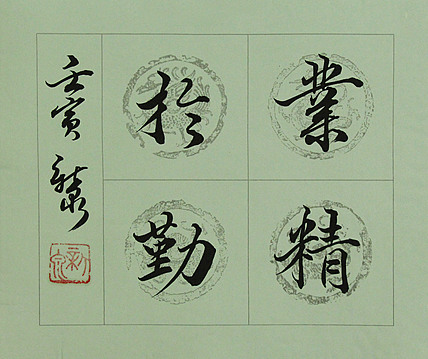 業精
於勤
壬寅